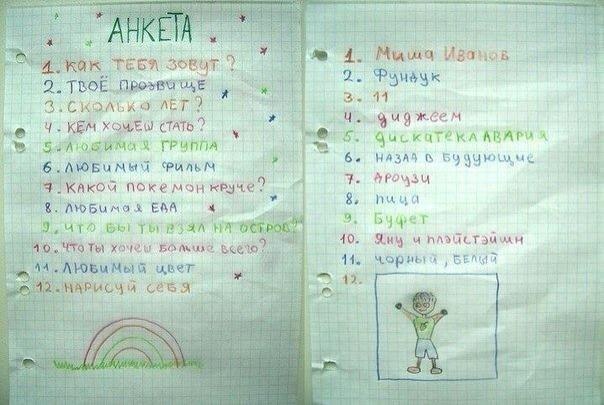 АНКЕТА
1. КАК ТЕБЯ ЗОВУТ?
2. ТВОЁ ПРОЗВИЩЕ
3. СКОЛЬКО ЛЕТ?
4. КЕМ ХОЧЕШ СТАТЬ?
5. ЛЮБИМАЯ ГРУППА
6. ЛЮБИМЫЙ ФИЛЬМ
7. КАКОЙ ПОКЕМОН КРУЧЕ?
8. ЛЮБИМАЯ ЕДА
9. ЧТО БЫ ТЫ ВЗЯЛ НА ОСТРОВ?
10. ЧТО ТЫ ХОЧЕШ БОЛЬШЕ ВСЕГО?
11. ЛЮБИМЫЙ ЦВЕТ
12. НАРИСУЙ СЕБЯ
1. Миша Иванов
2. Фундук
3. 11
4. диджеем
5. дискатека АВАРИЯ
6. НАЗАД В БУДУЮЩИЕ
7. дроузи
8. пица
9. Буфет
10. Яну и плэйстэйшн
11. чорный, БЕЛЫЙ
12.